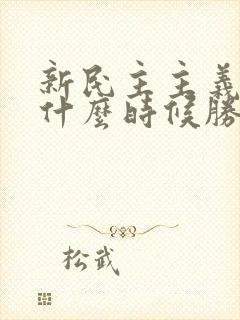 新民主主義
什麼時候勝
松武